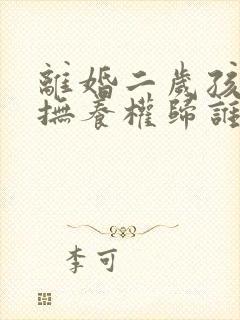 離婚二歲孩
撫養權歸誰
李可